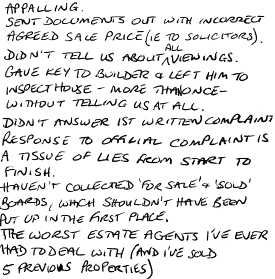 APPALLING.
SENT DOCUMENTS OUT WITH INCORRECT
AGREED SALE PRICE (IE TO SOLICITORS).
DIDN'T TELL US ABOUT ALL VIEWINGS.
GAVE KEY TO BUILDER & LEFT HIM TO
INSPECT HOUSE - MORE THAN ONCE -
WITHOUT TELLING US AT ALL.
DIDN'T ANSWER 1ST WRITTEN COMPLAINT
RESPONSE TO OFFICIAL COMPLAINT IS
A TISSUE OF LIES FROM START TO
FINISH.
HAVEN'T COLLECTED 'FOR SALE' & 'SOLD'
BOARDS, WHICH SHOULDN'T HAVE BEEN
PUT UP IN THE FIRST PLACE.
THE WORST ESTATE AGENTS I'VE EVER
HAD TO DEAL WITH (AND I'VE SOLD
5 PREVIOUS PROPERTIES)